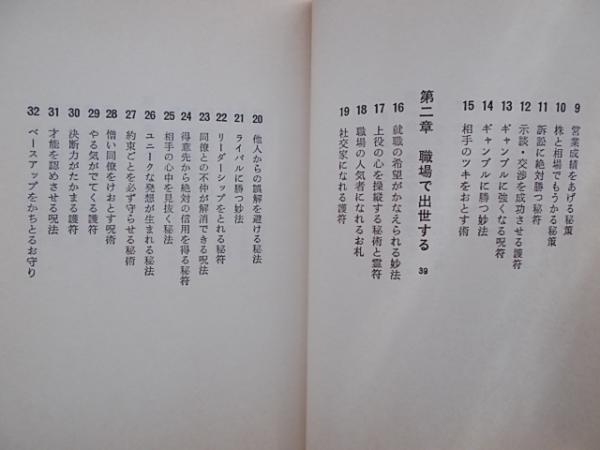 9 営業成績をあげる秘策
10 株と相場でもうかる秘策
11 訴訟に絶対勝つ秘符
12 示談・交渉を成功させる護符
13 ギャンブルに強くなる呪符
14 ギャンブルに勝つ妙法
15 相手のツキをおとす術
第二章 職場で出世する 39
16 就職の希望がかなえられる妙法
17 上役の心を操縦する秘術と霊符
18 職場の人気者になれるお札
19 社交家になれる護符
20 他人からの誤解を避ける秘法
21 ライバルに勝つ妙法
22 リーダーシップをとれる秘符
23 同僚との不仲が解消できる呪法
24 得意先から絶対の信用を得る秘符
25 相手の心中を見抜く秘法
26 ユニークな発想が生まれる秘法
27 約束ごとを必ず守らせる秘術
28 憎い同僚をけおとす呪術
29 やる気がでてくる護符
30 決断力がたかまる護符
31 才能を認めさせる呪法
32 ベースアップをかちとるお守り